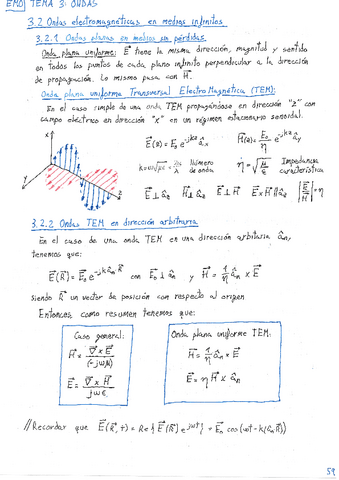 EMO TEMA 3: ONDAS
3.2 Ondas electromagnéticas en medios infinitos
3.2.1 Ondas planas en medios sin pérdidas.
Onda plana uniforme: E⃗ tiene la misma dirección, magnitud y sentido
en todos los puntos de cada, plano infinito perpendicular a la dirección
de propagación. Lo mismo pasa con H⃗.
Onda plana uniforme Transversal ElectroMagnética (TEM):
En el caso simple de una onda TEM propagándose en dirección "z" con
campo eléctrico en dirección "x" en un régimen estacionario senoidal.
E⃗(z) = E₀ e^-jkz â_x H⃗(z) = E₀/η e^-jkz â_y
x
y
z
k=ω√με = 2π/λ Número de onda η = √μ/ε Impedancia característica
E⃗ ⊥ â_z H⃗ ⊥ â_z E⃗ ⊥ H⃗ E⃗ × H⃗ // â_z |E⃗/H⃗| = η
3.2.2 Ondas TEM en dirección arbitraria
En el caso de una onda TEM en una dirección arbitraria â_n,
tenemos que:
E⃗(R⃗) = E⃗₀ e^-jk â_n R⃗ con E⃗₀ ⊥ â_n y H⃗ = 1/η â_n × E⃗
siendo R⃗ un vector de posición con respecto al origen
Entonces, como resumen tenemos que:
Caso general:
H⃗ = ∇⃗ × E⃗ / (-jωμ)
E⃗ = ∇⃗ × H⃗ / jωε
Onda plana uniforme TEM:
H⃗ = 1/η â_n × E⃗
E⃗ = η H⃗ × â_n
//Recordar que E⃗(R⃗, t) = Re{E⃗(R⃗) e^jωt} = E₀ cos(ωt - k(â_n R⃗))
59